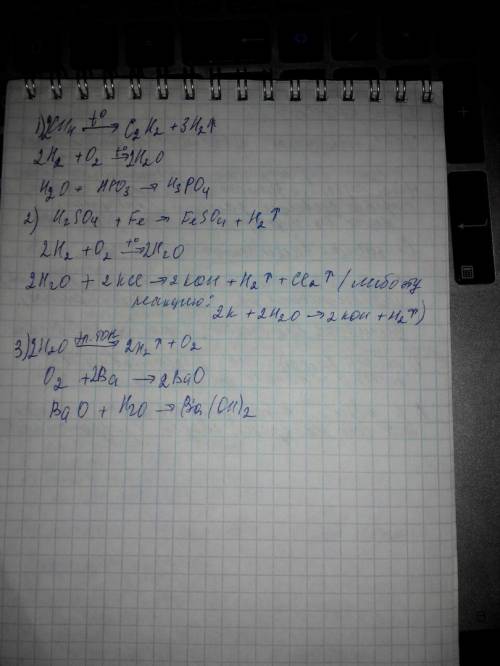 1) 2CH₄ —t°→ C₂H₂ + 3H₂↑
2H₂ + O₂ —t°→ 2H₂O
H₂O + HPO₃ → H₃PO₄
2) H₂SO₄ + Fe → FeSO₄ + H₂↑
2H₂ + O₂ —t°→ 2H₂O
2H₂O + 2KCl → 2KOH + H₂↑ + Cl₂↑ (либо эту
реакцию:
2K + 2H₂O → 2KOH + H₂↑)
3) 2H₂O —эл. ток→ 2H₂↑ + O₂
O₂ + 2Ba → 2BaO
BaO + H₂O → Ba(OH)₂